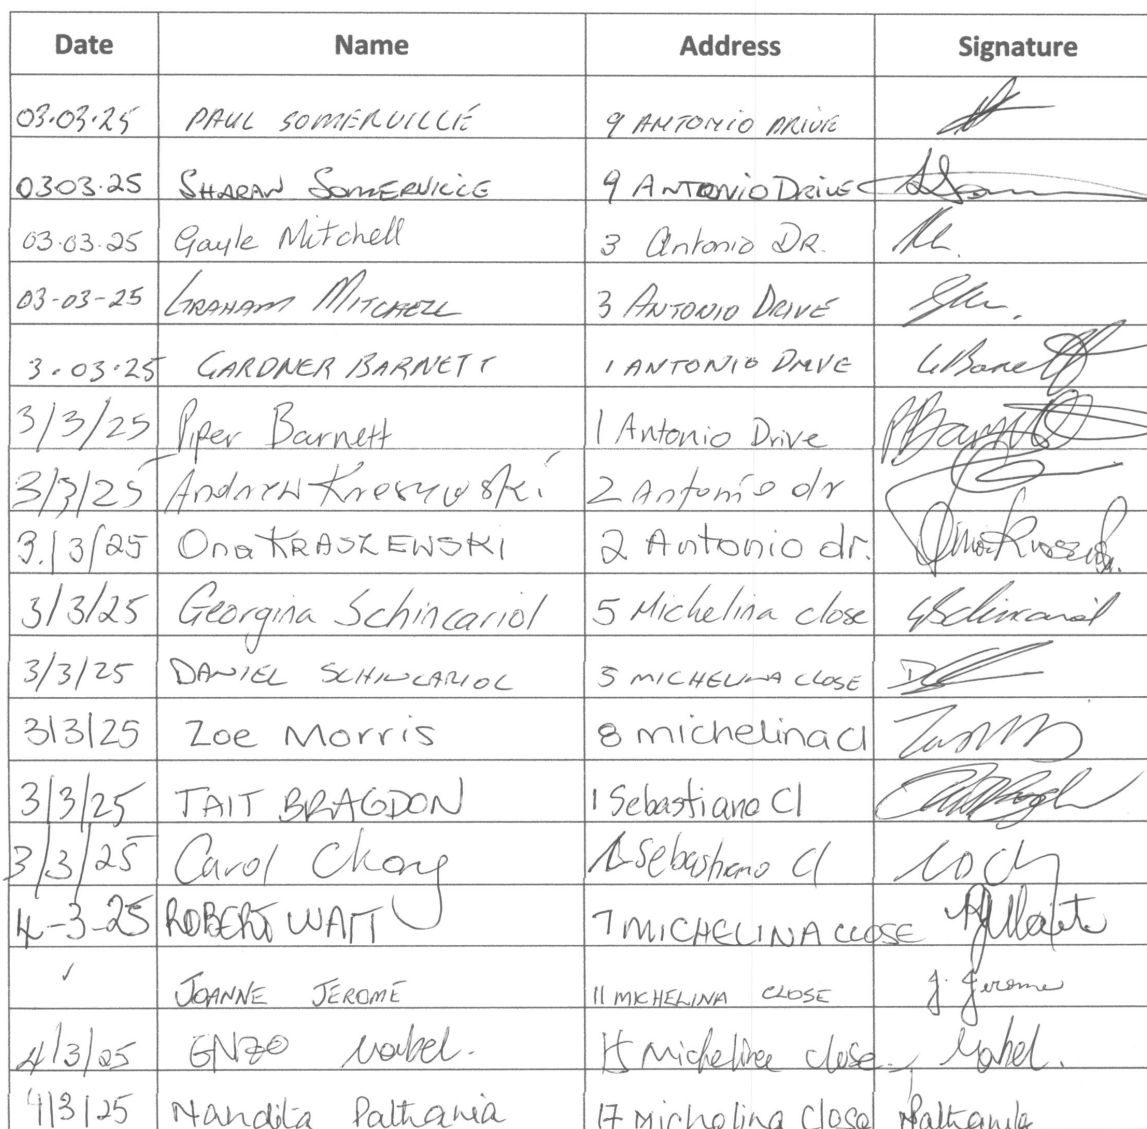 Date Name Address Signature
03.03.25 PAUL SOMERVILLE 9 ANTONIO DRIVE
0303.25 SHARAN SOMERVILLE 9 ANTONIO DRIVE
03.03.25 Gayle Mitchell 3 Antonio DR.
03-03-25 GRAHAM MITCHELL 3 ANTONIO DRIVE
3.03.25 GARDNER BARNETT 1 ANTONIO DRIVE G Barnett
3/3/25 Piper Barnett 1 Antonio Drive PBarnett
3/3/25 Andrew 2 Antonio dr
3/3/25 Ona KRASZEWSKI 2 Antonio dr.
3/3/25 Georgina Schincariol 5 Michelina close GSchincariol
3/3/25 DANIEL SCHINCARIOL 5 MICHELINA CLOSE
3/3/25 Zoe Morris 8 michelina cl
3/3/25 TAIT BRAGDON 1 Sebastiano Cl
3/3/25 Carol 1 Sebastiano Cl
4-3-25 ROBERT WATT 7 MICHELINA CLOSE
✓ JOANNE JEROME 11 MICHELINA CLOSE J. Jerome
4/3/25 ENZO 15 Micheline close.
4/3/25 Nandita Pathania 17 Michelina Close NPathania